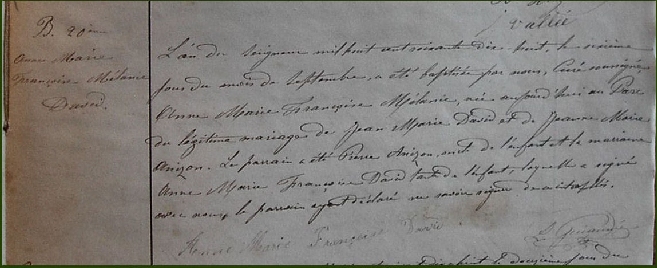 Vallée
B. 20ème
Anne Marie
Françoise Mélanie
David.
L'an du Seigneur mil huit cent soixante dix huit, le sixième
jour du mois de septembre, a été baptisée par nous, Curé soussigné,
Anne Marie Françoise Mélanie, née aujourd'hui au Parc
du légitime mariage de Jean Marie David et de Jeanne Marie
Anizon. Le parrain a été Pierre Anizon, de l'enfant et la marraine
Anne Marie Françoise David tante de l'enfant, laquelle a signé
avec nous, le parrain ayant déclaré ne savoir signer
Anne Marie Françoise David